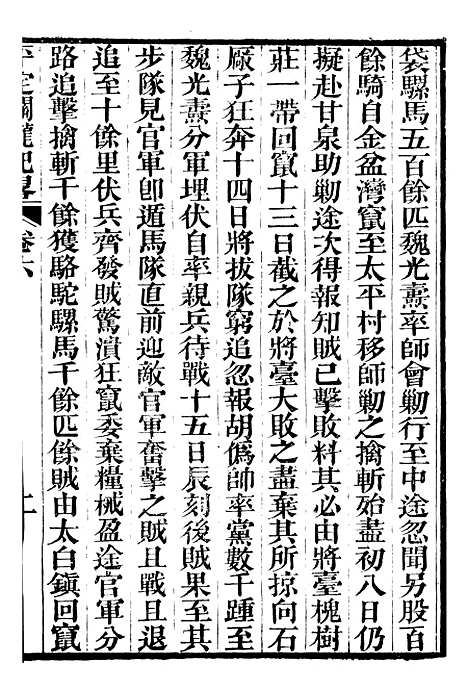 袋騾馬五百餘匹魏光燾率師會勦行至中途忽聞另股百
餘騎自金盆灣竄至太平村移師勦之擒斬始盡初八日仍
擬赴甘泉助勦途次得報知賊已擊敗料其必由將臺槐樹
莊一帶回竄十三日截之於將臺大敗之盡棄其所掠向石
廠子狂奔十四日將拔隊窮追忽報胡僞帥率黨數千踵至
魏光燾分軍埋伏自率親兵待戰十五日辰刻後賊果至其
步隊見官軍卽遁馬隊直前迎敵官軍奮擊之賊且戰且退
追至十餘里伏兵齊發賊驚潰狂竄委棄糧械盈途官軍分
路追擊擒斬千餘獲駱駝騾馬千餘匹餘賊由太白鎭回竄
平定關隴紀畧 卷六 二